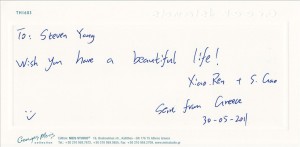 To: Steven Yang
Wish you have a beautiful life!
Xiao Ren + S. Gao
Send from Greece
30-05-2011